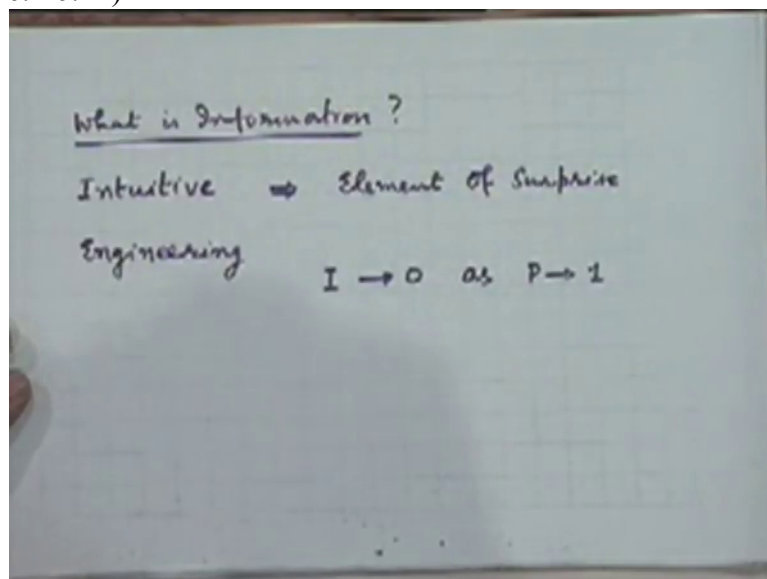 What is Information ?
Intuitive ⇒ Element of Surprise
Engineering
I → 0 as P → 1